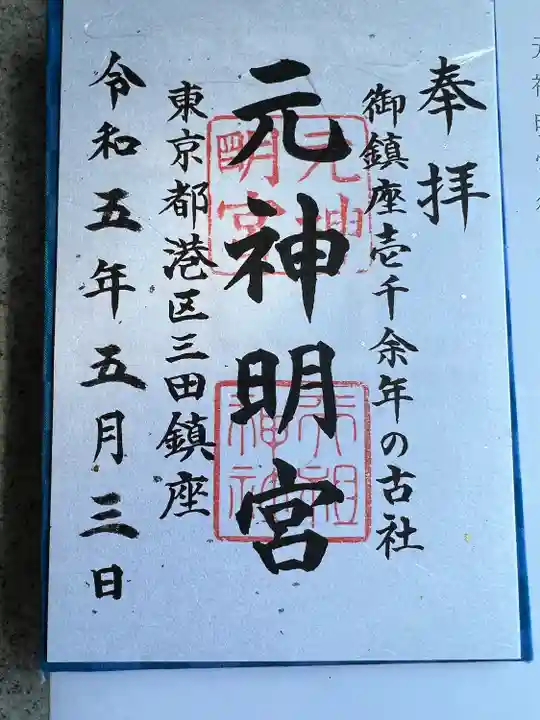 奉拝
御鎮座壱千余年の古社
元神明宮
元神明宮
天祖神社
東京都港区三田鎮座
令和五年五月三日